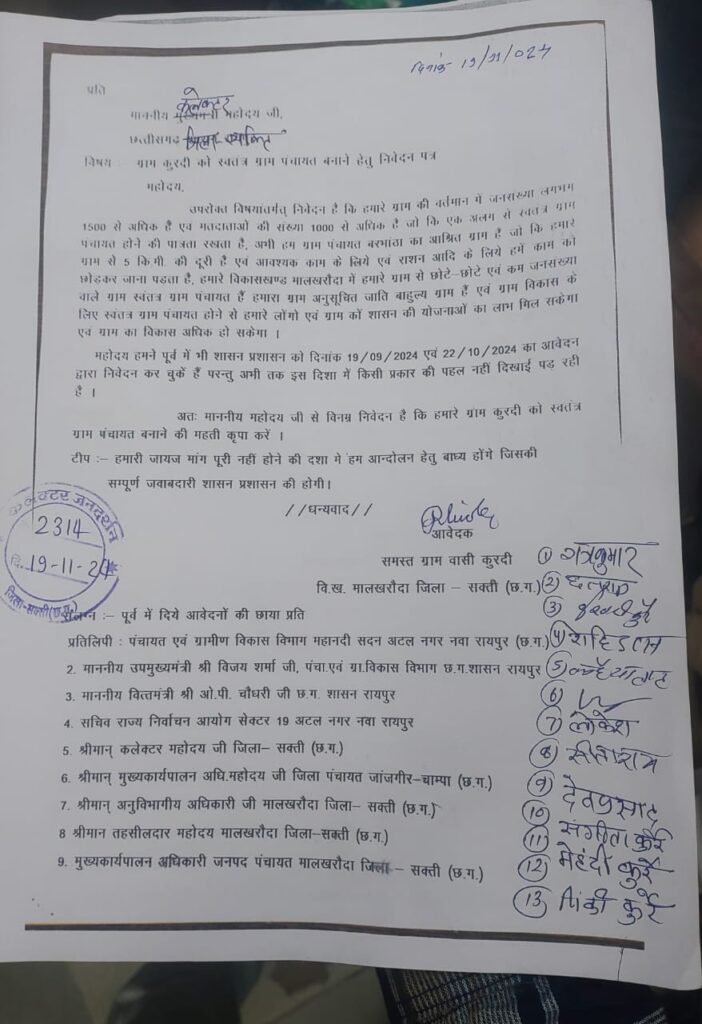 दिनांक 19/11/024
प्रति
कलेक्टर
माननीय मुख्यमंत्री महोदय जी,
छत्तीसगढ़
विषय :- ग्राम कुरदी को स्वतंत्र ग्राम पंचायत बनाने हेतु निवेदन पत्र
महोदय,
उपरोक्त विषयांतर्गत् निवेदन है कि हमारे ग्राम की वर्तमान में जनसंख्या लगभग
1500 से अधिक हैं एवं मतदाताओं की संख्या 1000 से अधिक है जो कि एक अलग से स्वतंत्र ग्राम
पंचायत होने की पात्रता रखता है, अभी हम ग्राम पंचायत बरभांठा का आश्रित ग्राम है जो कि हमारे
ग्राम से 5 कि.मी. की दूरी है एवं आवश्यक काम के लिये एवं राशन आदि के लिये हमें काम को
छोड़कर जाना पड़ता है, हमारे विकासखण्ड मालखरौदा में हमारे ग्राम से छोटे-छोटे एवं कम जनसंख्या
वाले ग्राम स्वंतत्र ग्राम पंचायत हैं हमारा ग्राम अनुसूचित जाति बाहुल्य ग्राम हैं एवं ग्राम विकास के
लिए स्वंतत्र ग्राम पंचायत होने से हमारे लोंगो एवं ग्राम कों शासन की योजनाओं का लाभ मिल सकेगा
एवं ग्राम का विकास अधिक हो सकेगा ।
महोदय हमने पूर्व में भी शासन प्रशासन को दिनांक 19/09/2024 एवं 22/10/2024 का आवेदन
द्वारा निवेदन कर चुकें हैं परन्तु अभी तक इस दिशा में किसी प्रकार की पहल नहीं दिखाई पड़ रही
है ।
अतः माननीय महोदय जी से विनम्र निवेदन है कि हमारे ग्राम कुरदी को स्वतंत्र
ग्राम पंचायत बनाने की महती कृपा करें ।
टीप :– हमारी जायज मांग पूरी नहीं होने की दशा मे हम आन्दोलन हेतु बाध्य होंगे जिसकी
सम्पूर्ण जवाबदारी शासन प्रशासन की होगी।
//धन्यवाद//
आवेदक
समस्त ग्राम वासी कुरदी
वि.ख. मालखरौदा जिला – सक्ती (छ.ग.)
कलेक्टर जनदर्शन
2314
दि. 19-11-24
जिला-सक्ती (छ.ग.)
संलग्न :– पूर्व में दिये आवेदनों की छाया प्रति
प्रतिलिपी : पंचायत एवं ग्रामीण विकास विभाग महानदी सदन अटल नगर नवा रायपुर (छ.ग.)
2. माननीय उपमुख्यमंत्री श्री विजय शर्मा जी, पंचा.एवं ग्रा.विकास विभाग छ.ग.शासन रायपुर
3. माननीय वित्तमंत्री श्री ओ.पी. चौधरी जी छ.ग. शासन रायपुर
4. सचिव राज्य निर्वाचन आयोग सेक्टर 19 अटल नगर नवा रायपुर
5. श्रीमान् कलेक्टर महोदय जी जिला– सक्ती (छ.ग.)
6. श्रीमान् मुख्यकार्यपालन अधि.महोदय जी जिला पंचायत जांजगीर-चाम्पा (छ.ग.)
7. श्रीमान् अनुविभागीय अधिकारी जी मालखरौदा जिला– सक्ती (छ.ग.)
8 श्रीमान तहसीलदार महोदय मालखरौदा जिला–सक्ती (छ.ग.)
9. मुख्यकार्यपालन अधिकारी जनपद पंचायत मालखरौदा जिला – सक्ती (छ.ग.)
①
②
③
④
⑤
⑥
⑦ लोकेश
⑧ सीताराम
⑨ देवप्रसाद
⑩ संगीता कुर्रे
⑪
⑫ मेहंदी कुर्रे
⑬ पिंकी कुर्रे